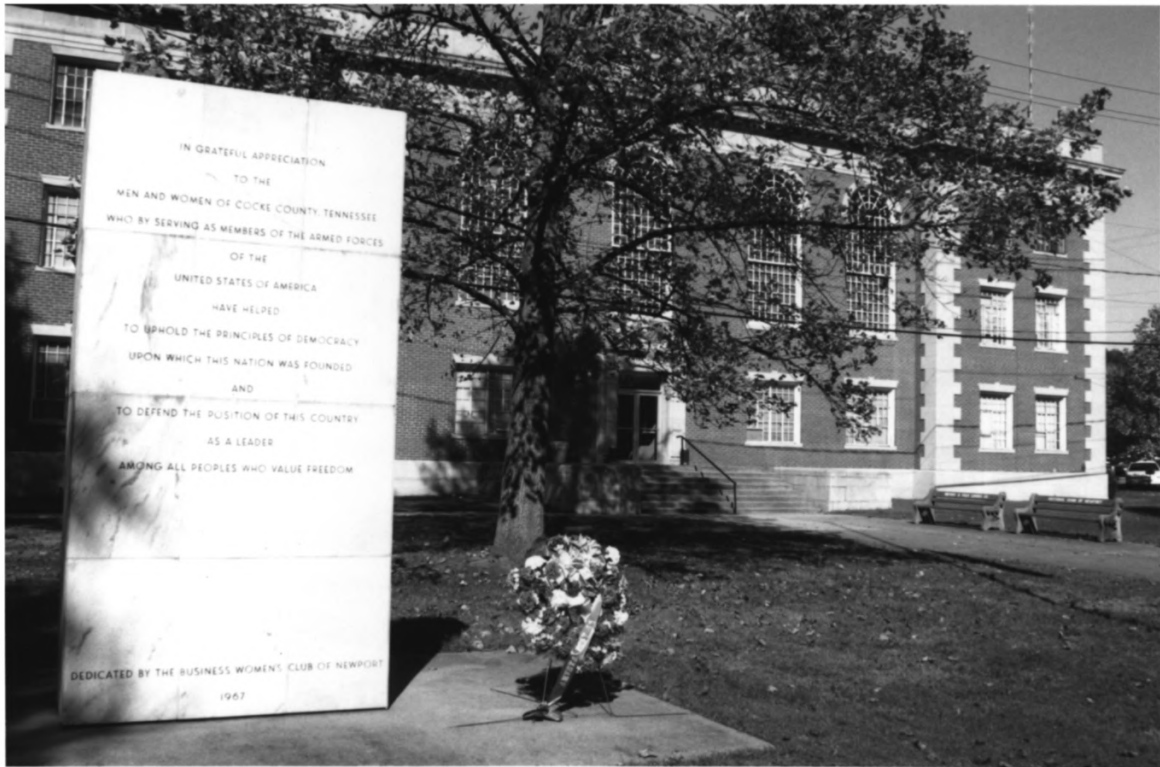 IN GRATEFUL APPRECIATION
TO THE
MEN AND WOMEN OF COCKE COUNTY, TENNESSEE
WHO BY SERVING AS MEMBERS OF THE ARMED FORCES
OF THE
UNITED STATES OF AMERICA
HAVE HELPED
TO UPHOLD THE PRINCIPLES OF DEMOCRACY
UPON WHICH THIS NATION WAS FOUNDED
AND
TO DEFEND THE POSITION OF THIS COUNTRY
AS A LEADER
AMONG ALL PEOPLES WHO VALUE FREEDOM
DEDICATED BY THE BUSINESS WOMEN'S CLUB OF NEWPORT
1967